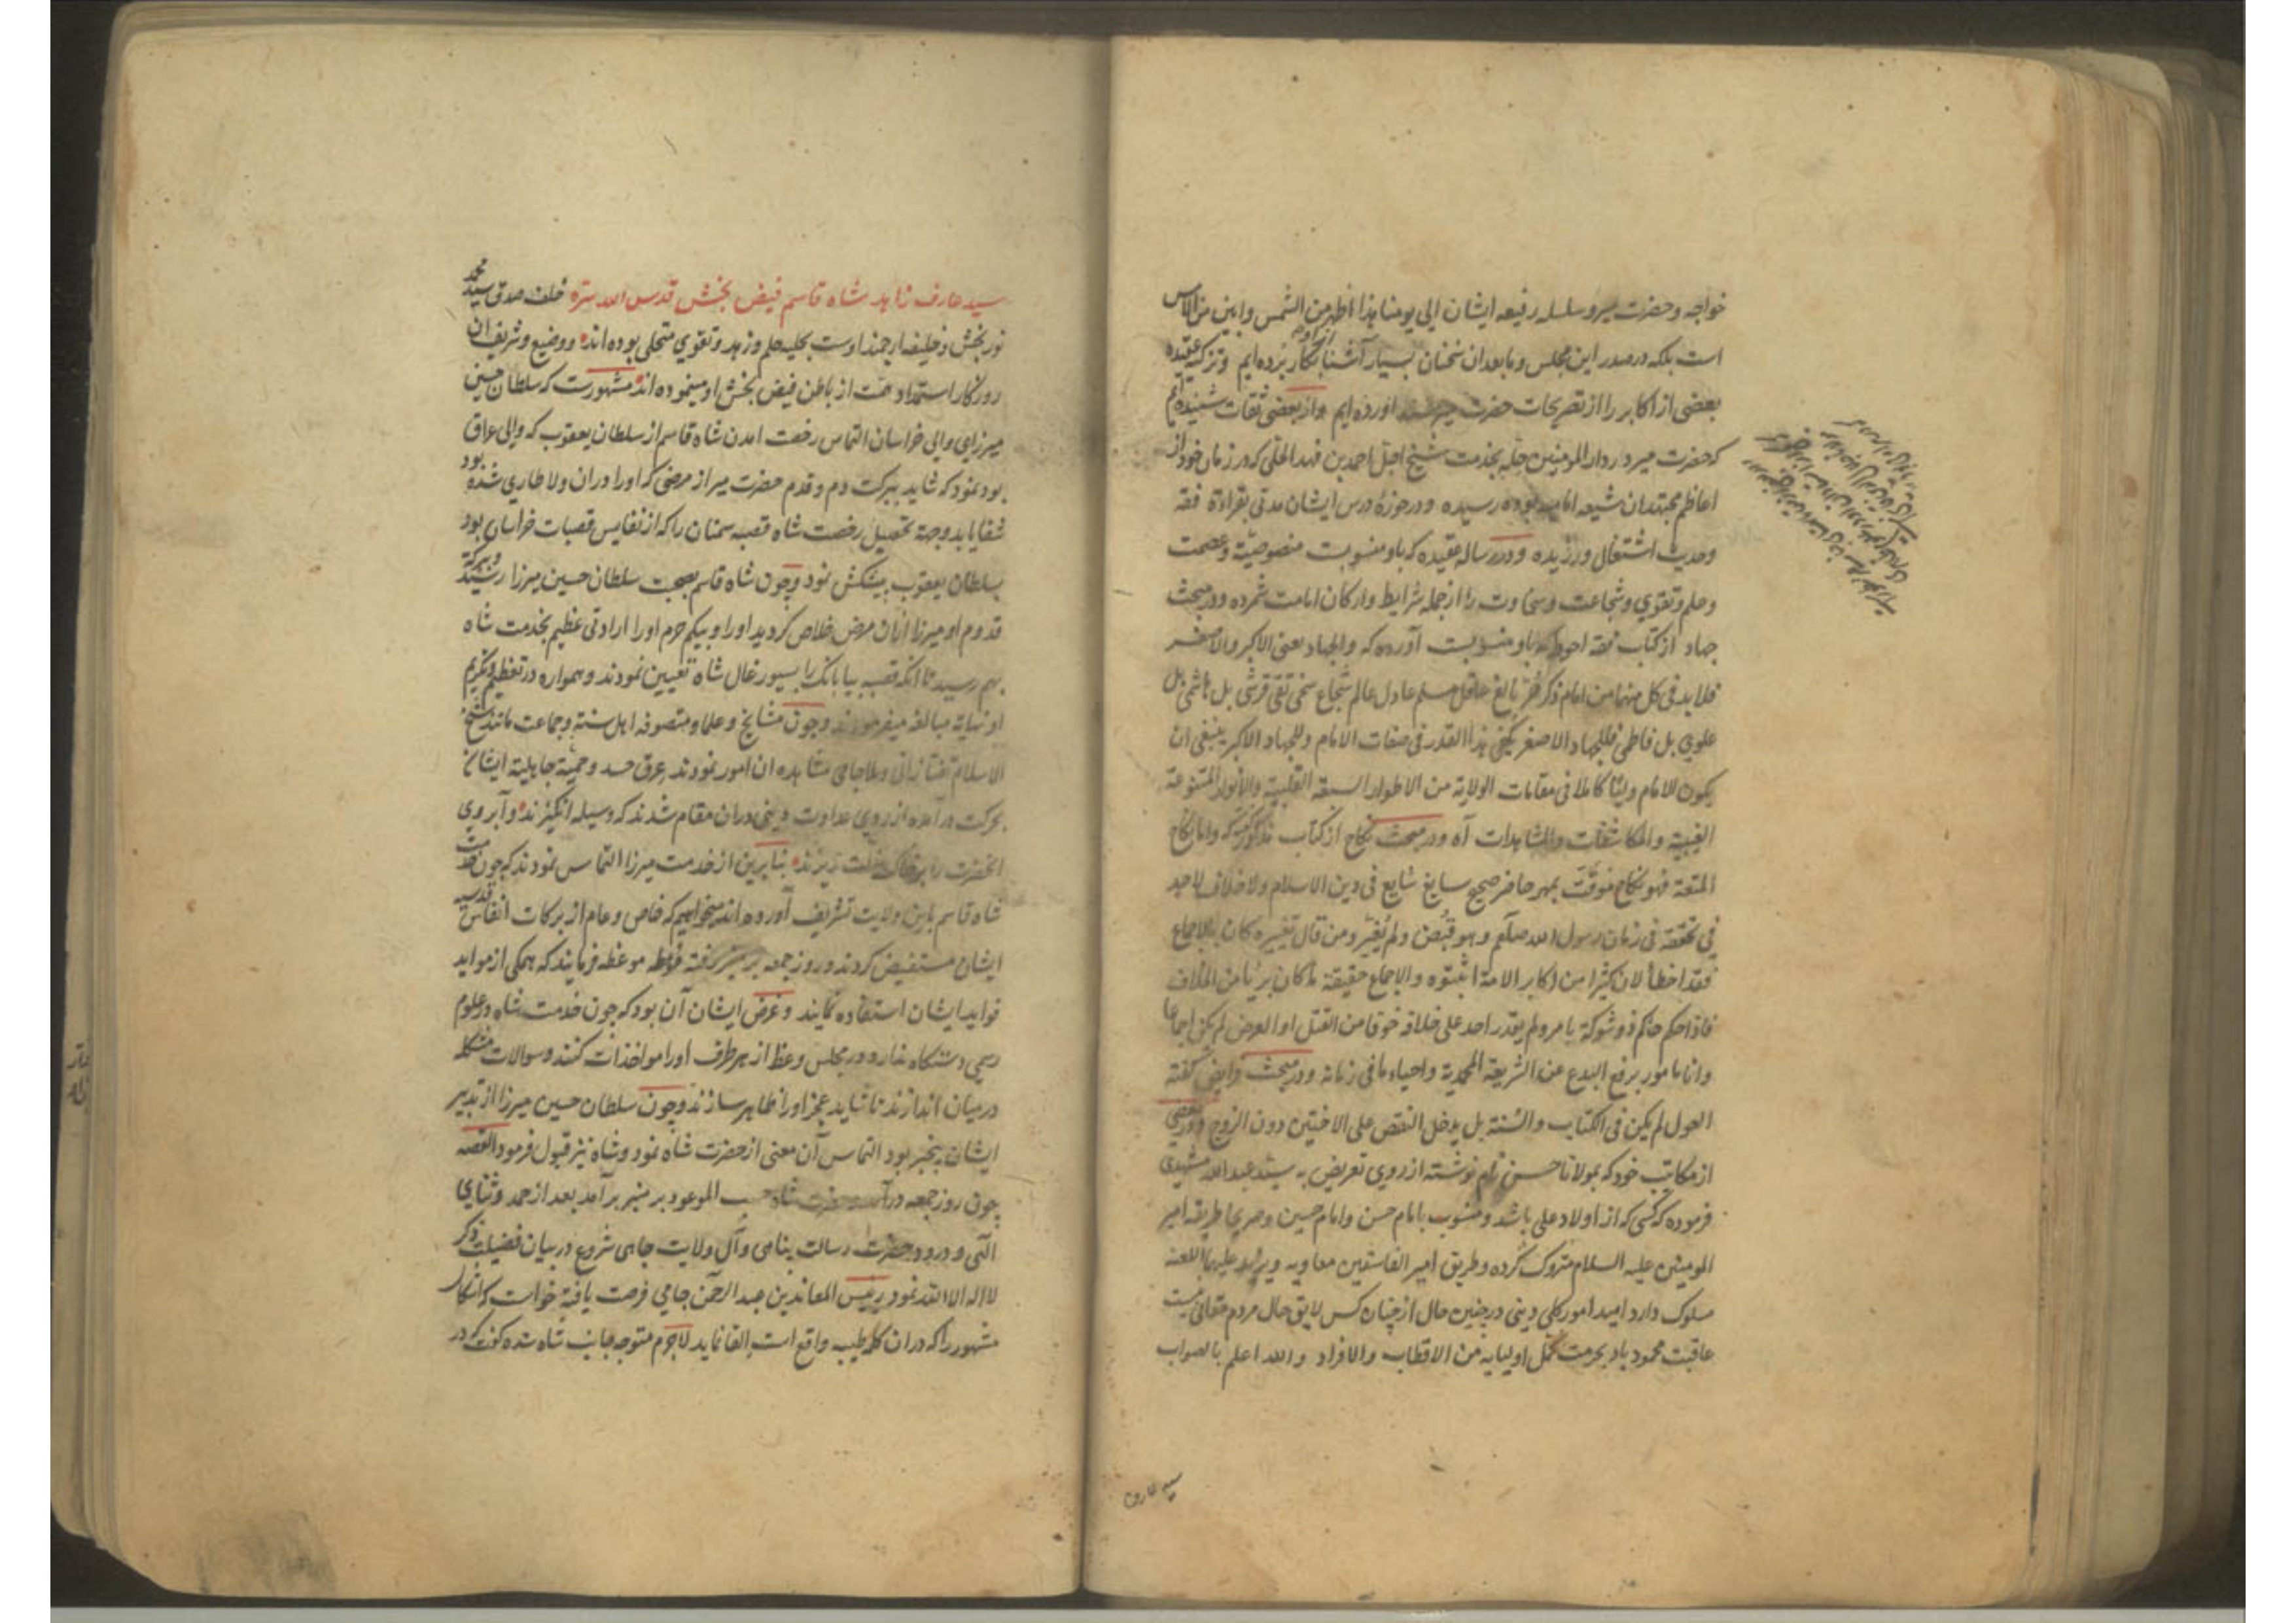 خواجه و حضرت میر و سلسله رفیعه ایشان الی یومنا هذا اظهر من الشمس وابین من الامس
است بلکه در صدر این مجلس و مابعد ان سخنان بسیار آشنا بکار برده ایم و تزکیه عقیده
بعضی از اکابر را از تصریحات حضرت میر اورده ایم و از بعضی ثقات شنیده ایم
که حضرت میر در دار المومنین حله بخدمت شیخ اجل احمد بن فهد الحلی که در زمان خود از
اعاظم مجتهدان شیعه امامیه بوده رسیده و در حوزۀ درس ایشان مدتی بقراءة فقه
وحدیث اشتغال ورزیده و در رساله عقیده که باو منسوبست منصوصیّة و عصمت
وعلم وتقوی و شجاعت و سخاوت را از جمله شرایط و ارکان امامت شمرده و در مبحث
جهاد از کتاب فقه احوط که باو منسوبست آورده که والجهاد یعنی الاکبر والاصغر
فلا بد فی کل منهما من امام ذکر حُرّ بالغ عاقل مسلم عادل عالم شجاع سخی تقی قرشی بل هاشمی بل
علوی بل فاطمی فللجهاد الاصغر یکفی هذا القدر فی صفات الامام وللجهاد الاکبر ینبغی ان
یکون الامام ولیّا کاملا فی مقامات الولایة من الاطوار السبعة القلبیة والانوار المتنوعة
الغیبیة والمکاشفات والمشاهدات آه و در مبحث نکاح از کتاب مذکور گفته که واما نکاح
المتعة فهو نکاح موقّت بمهر حاضر صحیح سایغ شایع فی دین الاسلام ولا خلاف لاحد
فی تحققه فی زمان رسول الله صلعم وهو قُبِض ولم یُغیّر ومن قال تغییره کان بالاجماع
فقد اخطأ لان کثیرا من اکابر الامة اثبتوه والاجماع حقیقة ما کان بریا من الخلاف
فاذا حکم حاکم ذو شوکة بامر ولم یقدر احد علی خلافه خوفا من القتل او العرض لم یکن اجماعا
وانا مامور برفع البدع عن الشریعة المحمدیة واحیاء ما فی زمانه و در مبحث فرایض گفته
العول لم یکن فی الکتاب والسُنة بل یدخل النقص علی الاختین دون الزوج و در بعضی
از مکاتیب خود که بمولانا حسن نوشته از روی تعریض به سید عبدالله مشهدی
فرموده که کسی که از اولاد علی باشد و منسوب بامام حسن و امام حسین و صریحا طریقه امیر
المومنین علیه السلام متروک کرده و طریق امیر الفاسقین معاویه و یزید علیهما اللعنه
مسلوک دارد امید امور کلی دینی در چنین حال از چنان کس لایق حال مردم حقانی نیست
عاقبت محمود باد بحرمت کُمّل اولیایه من الاقطاب والافراد والله اعلم بالصواب
سید عارف
سید عارف زاهد شاه قاسم فیض بخش قدس الله سره خلف صدق سید محمد
نوربخش و خلیفه ارجمند اوست بحلیه علم و زهد و تقوی متحلی بوده اند و وضیع و شریف ان
روزگار استمداد همت از باطن فیض بخش او مینموده اند مشهورست که سلطان حسین
میرزای والی خراسان التماس رخصت امدن شاه قاسم از سلطان یعقوب که والی عراق
بود نمود که شاید ببرکت دم و قدم حضرت میر از مرضی که او را دران ولا طاری شده بود
شفا یابد و جهة تحصیل رخصت شاه قصبه سمنان را که از نفایس قصبات خراسان بود
بسلطان یعقوب پیشکش نمود و چون شاه قاسم بصحبت سلطان حسین میرزا رسید و ببرکة
قدوم او میرزا ازان مرض خلاص گردید او را و بیکم حرم او را ارادتی عظیم بخدمت شاه
بهم رسید تا انکه قصبه بیابانک را بسیورغال شاه تعیین نمودند و همواره در تعظیم و تکریم
او نهایة مبالغه میفرمودند و چون مشایخ و علما و متصوفه اهل سنة و جماعت مانند شیخ
الاسلام تفتازانی و ملا جامی مشاهده ان امور نمودند عرق حسد و حمیّة جاهلیة ایشان
بحرکت درآمده از روی عداوت دینی دران مقام شدند که وسیله انگیزند و آبروی
انحضرت را بر خاک مذلت ریزند بنابرین از خدمت میرزا التماس نمودند که چون خدمت
شاه قاسم باین ولایت تشریف آورده اند میخواهیم که خاص و عام از برکات انفاس قدسیه
ایشان مستفیض گردند و روز جمعه بر منبر رفته موعظه فرمایند که همکی از مواید
فواید ایشان استفاده نمایند و غرض ایشان آن بود که چون خدمت شاه در علوم
رسمی دستگاه ندارد در مجلس وعظ از هر طرف او را مواخذات کنند و سوالات مشکله
درمیان اندازند تا شاید عجز او را ظاهر سازند و چون سلطان حسین میرزا از تدبیر
ایشان بیخبر بود التماس آن معنی از حضرت شاه نمود و شاه نیز قبول فرمود القصه
چون روز جمعه درآمد حضرت شاه حسب الموعود بر منبر برآمد بعد از حمد و ثنای
الهی و درود حضرت رسالت پناهی و آل ولایت جاهی شروع در بیان فضیلت ذکر
لا اله الا الله نمود رییس المعاندین عبد الرحمن جامی فرصت یافته خواست که انکار
مشهور را که دران کلمه طیبه واقع است القا نماید لاجرم متوجه جانب شاه شده گفت که در